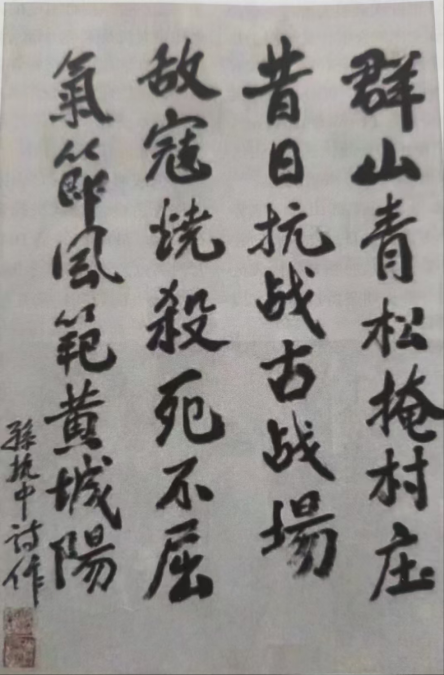 群山青松掩村庄
昔日抗战古战場
敌寇烧殺死不屈
氣節風範黄城陽
孫執中诗作